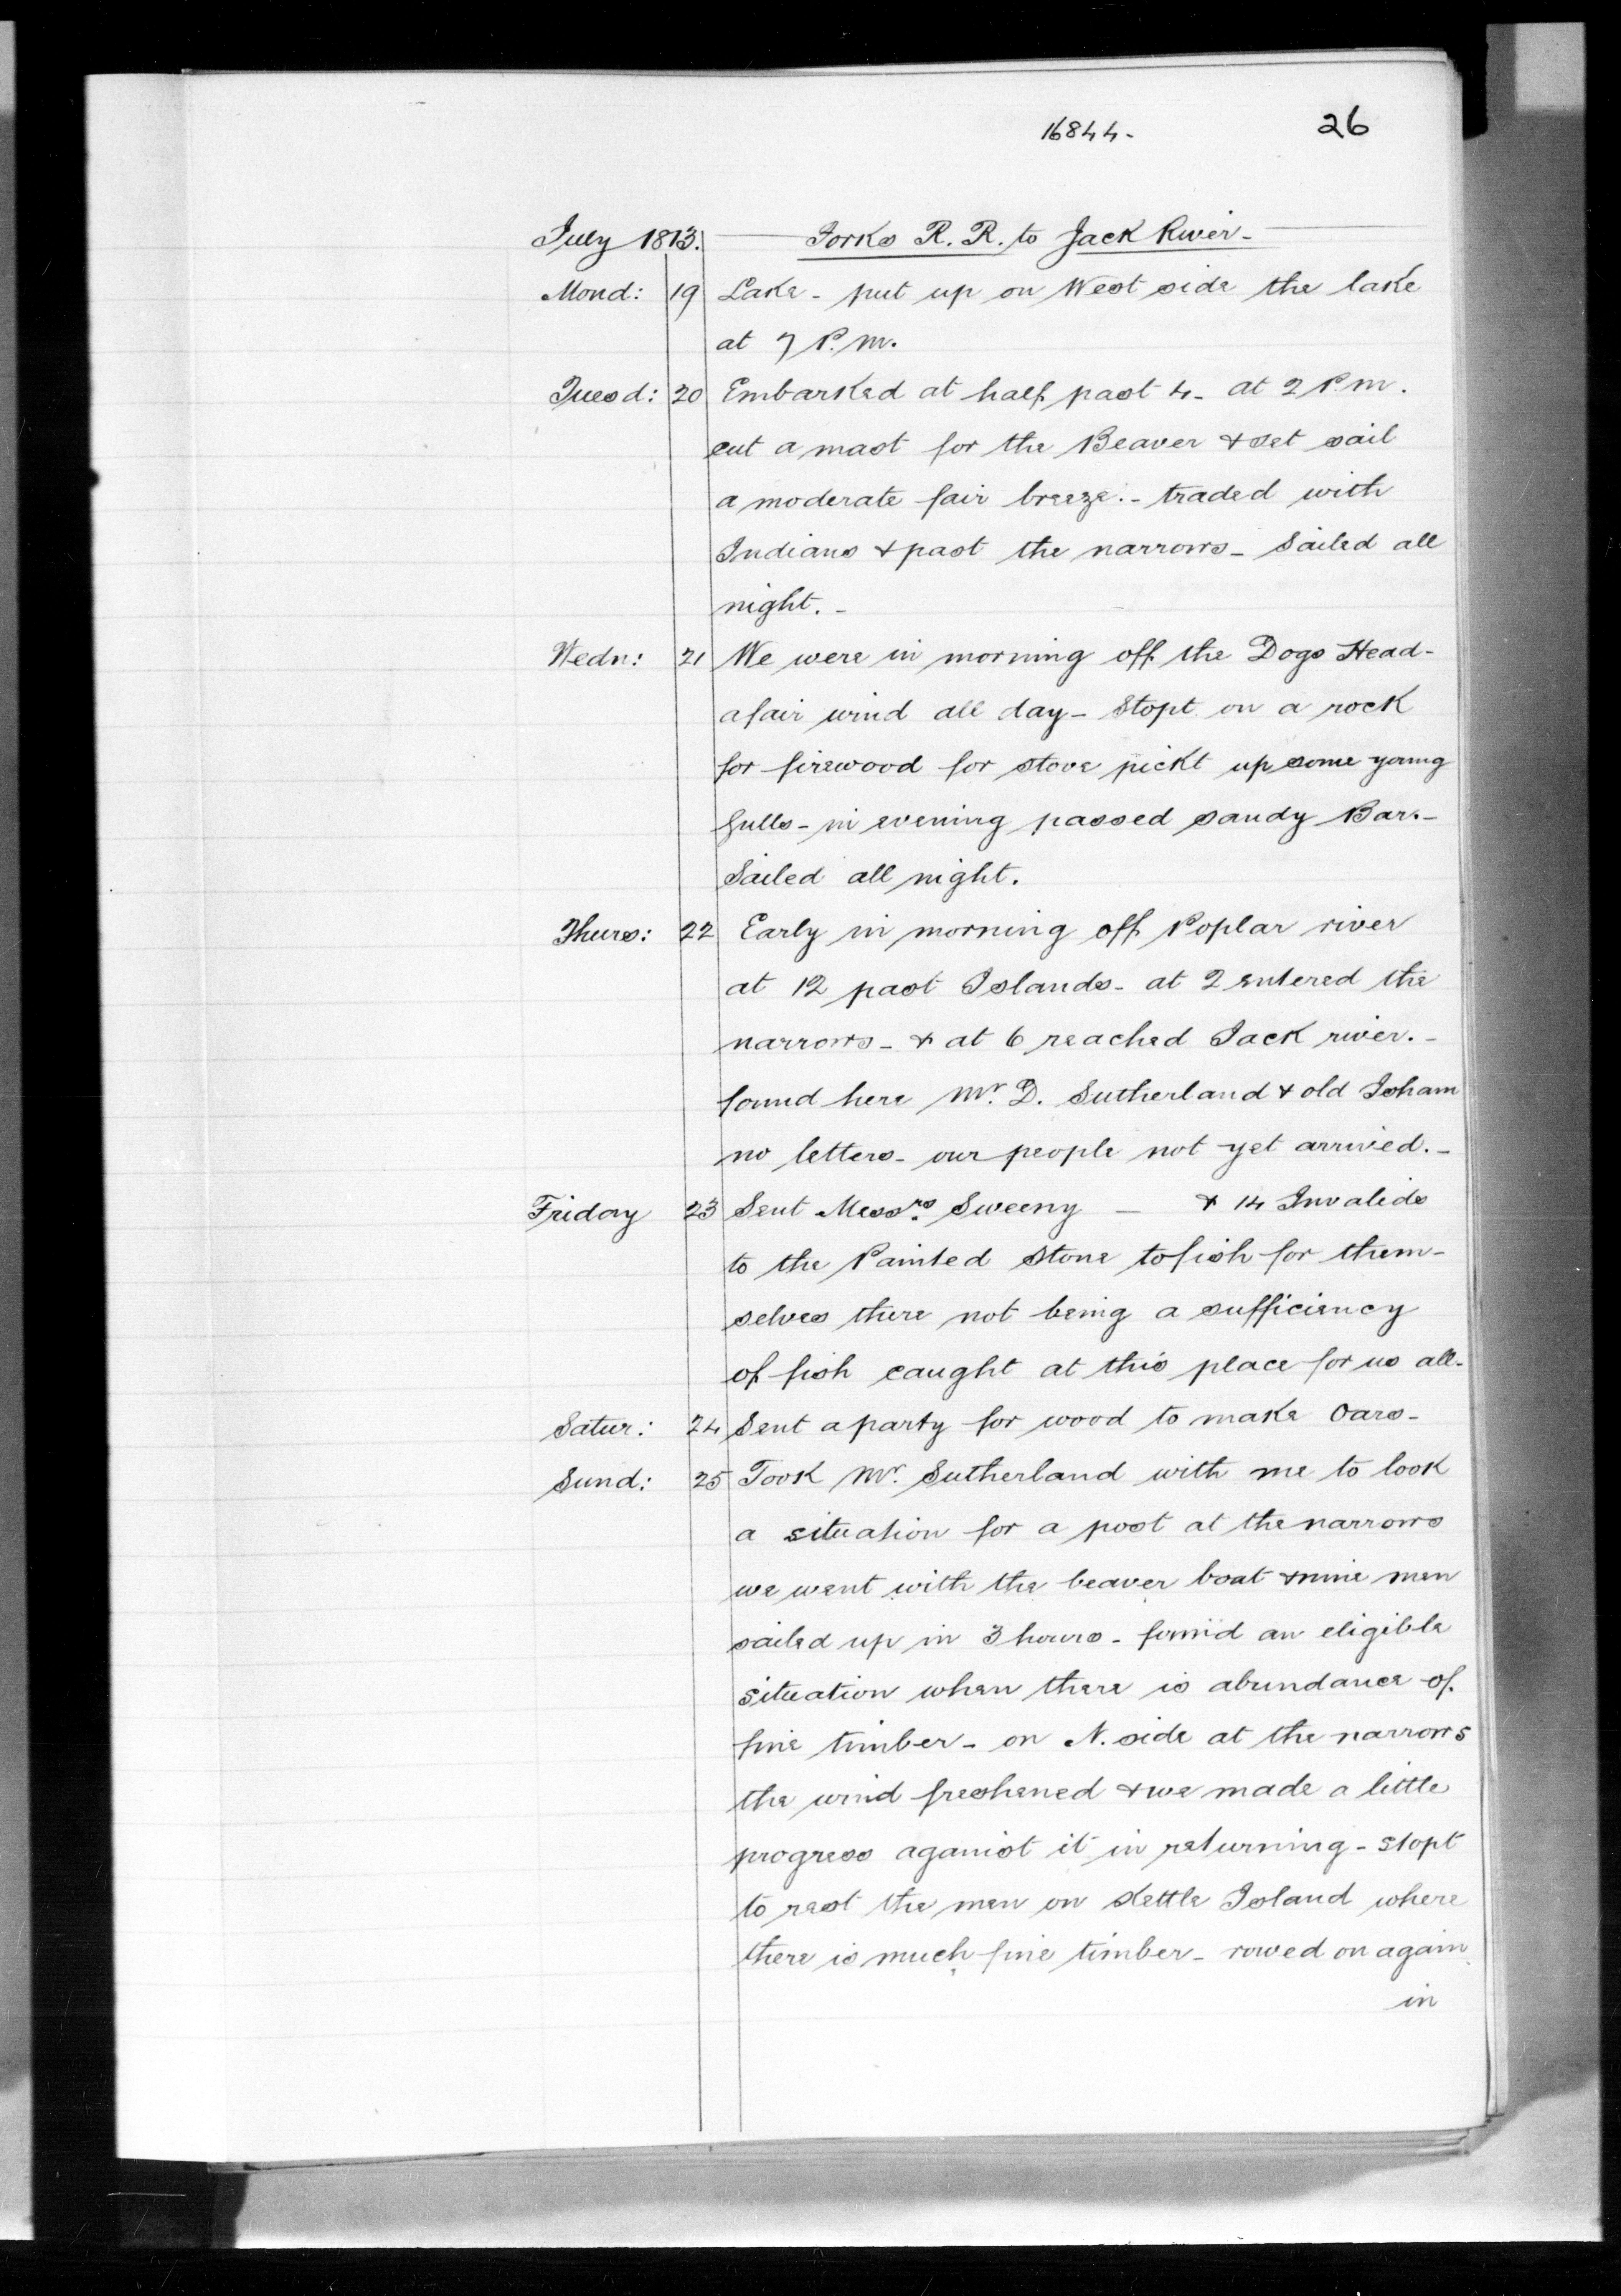 16844-
26
July 1813. Forks R. R. to Jack River-
Mond: 19 Lake - put up on West side the lake
at 7 P.m.
Tuesd: 20 Embarked at half past 4- at 2 P.m.
cut a mast for the Beaver & set sail
a moderate fair breeze:- traded with
Indians & past the narrows- Sailed all
night.-
Wedn: 21 We were in morning off the Dogs Head-
a fair wind all day- Stopt on a rock
for firewood for stove pickt up some young
Gulls- in evening passed sandy Bar.-
Sailed all night.
Thurs: 22 Early in morning off Poplar river
at 12 past Islands- at 2 entered the
narrows- & at 6 reached Jack river.-
found here Mr. D. Sutherland & old Isham
no letters- our people not yet arrived.-
Friday 23 Sent Messrs Sweeny - & 14 Invalids
to the Painted Stone to fish for them-
selves there not being a sufficiency
of fish caught at this place for us all-
Satur: 24 Sent a party for wood to make Oars-
Sund: 25 Took Mr. Sutherland with me to look
a situation for a post at the narrows
we went with the beaver boat & nine men
sailed up in 3 hours- found an eligible
situation when there is abundance of
fine timber- on N. side at the narrows
the wind freshened & we made a little
progress against it in returning- stopt
to rest the men on Kettle Island where
there is much fine timber- rowed on again
in